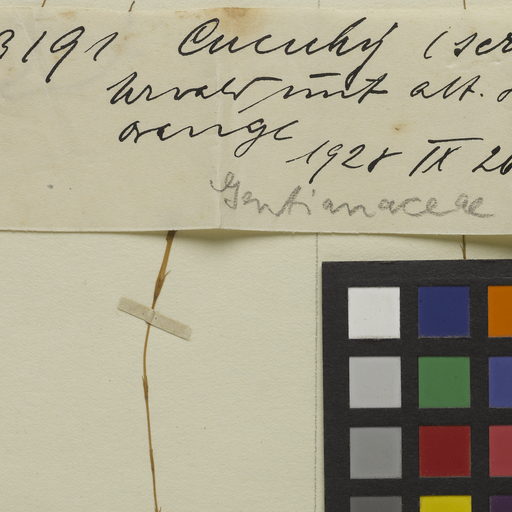 3191 Cucuhy (ser
Urwald mit alt.
orange
1928 IX 26
Gentianaceae